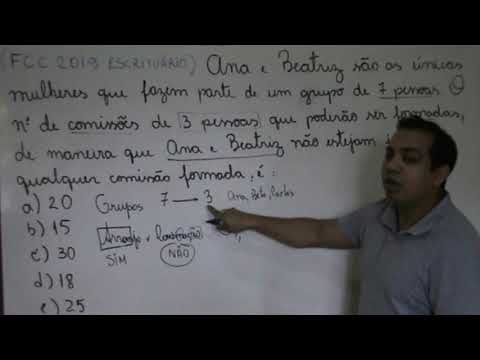 (FCC 2019 ESCRITURÁRIO) Ana e Beatriz são as únicas
mulheres que fazem parte de um grupo de 7 pessoas O
nº de comissões de 3 pessoas que poderão ser formadas,
de maneira que Ana e Beatriz não estejam
qualquer comissão formada, é:
a) 20 Grupos 7 → 3 Ana, Beto, Carlos
b) 15 Arranjo Combinação
c) 30 SIM NÃO
d) 18
e) 25